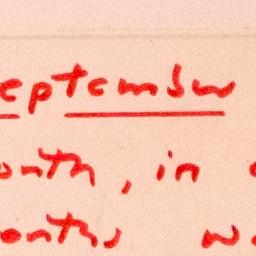 eptember
onth, in
onths